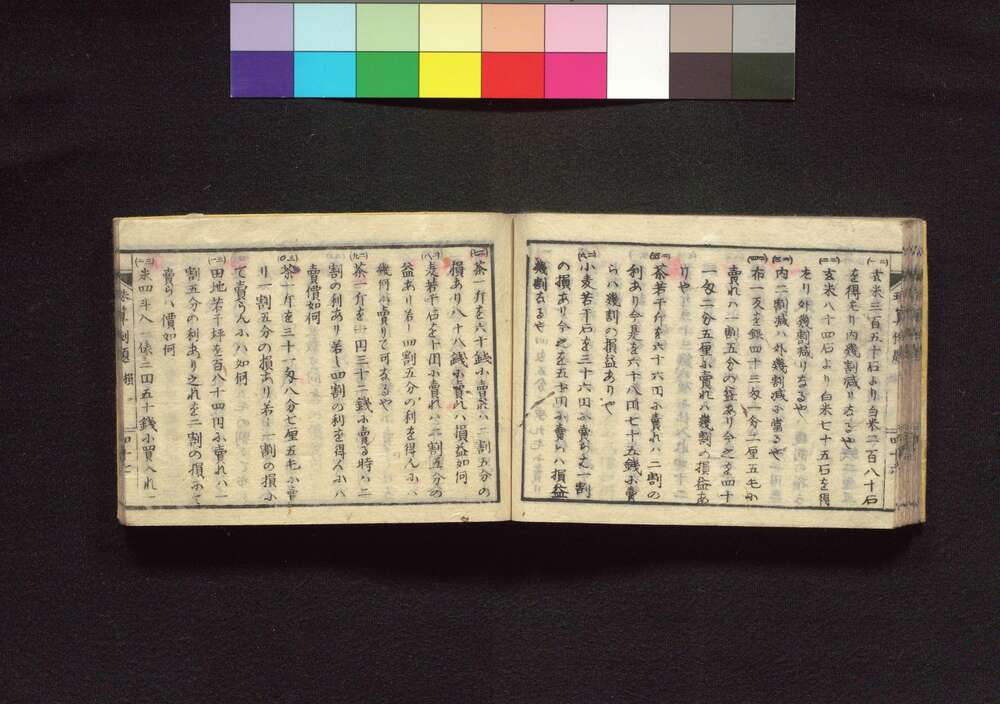 玄米三百五十石より白米二百八十石
を得たり内幾割減りたるや
玄米八十四石より白米七十五石を得
たり外幾割減りなるや
内二割減ハ外幾割減ふ當るや
布一反を銀四十三匁一分二厘五毛ふ
賣れハ一割五分の益あり今之を四十
一匁二分五厘ふ賣れハ幾割の損益あ
りや
茶若干斤を六十六円ふ賣れハ二割の
利あり今是を六十八円七十五銭ふ賣
らハ幾割の損益ありや
小麦若干石を三十六円ふ賣らハ一割
の損あり今之を五十円ふ賣らハ損益
幾割なるや
茶一斤を六十銭ふ賣れハ二割五分の
損あり八十八銭ふ賣れハ損益如何
麦若干石を十円ふ賣れハ二割五分の
益あり若し四割五分の利を得んふハ
幾何ふ賣りて可なるや
茶一斤を 円三十二銭ふ賣る時ハ二
割の利あり若し四割の利を得んふハ
賣價如何
茶一斤を三十一匁八分七厘五毛ふ賣
り一割五分の損あり若し一割の損ふ
て賣らんふハ如何
田地若干坪を百八十四円ふ賣れハ一
割五分の利あり之れを二割の損ふて
賣らハ價如何
米四斗入一俵二円五十銭ふ買入れ一
珠算 題 損
四十七